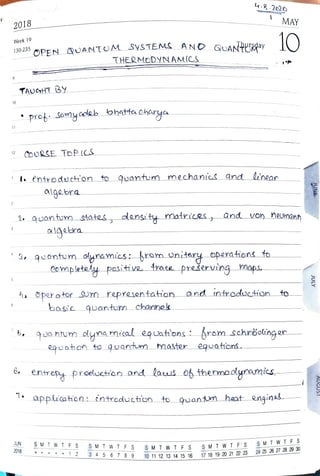 4.8.2020
2018
MAY
Week 19
130-235
Thursday
10
OPEN QUANTUM SYSTEMS AND QUANTUM
THERMODYNAMICS
TAUGHT BY
• prof. Samyadeb bhattacharya
COURSE TOPICS
1. introduction to quantum mechanics and linear
algebra
2. quantum states, density matrices, and von neumann
algebra
3. quantum dynamics: from unitary operations to
completely positive trace preserving maps.
4. operator sum representation and introduction to
basic quantum channels
5. quantum dynamical equations: from schrödinger
equation to quantum master equations.
6. entropy production and laws of thermodynamics
7. application: introduction to quantum heat engines.
JUNE
JULY
AUGUST
JUN
2018
S M T W T F S S M T W T F S S M T W T F S S M T W T F S S M T W T F S
1 2 3 4 5 6 7 8 9 10 11 12 13 14 15 16 17 18 19 20 21 22 23 24 25 26 27 28 29 30